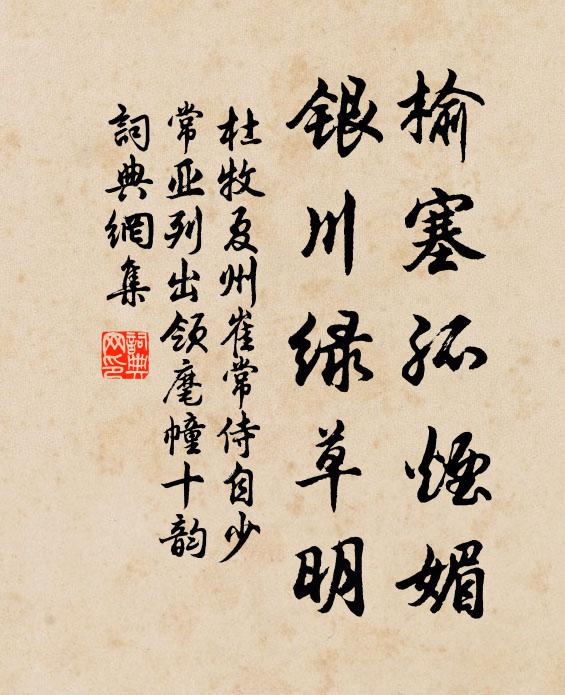 榆塞孤煙媚
銀川綠草明
杜牧夏州崔常侍自少
常亚列出領麾幢十韵
詞典網集
詞典网印